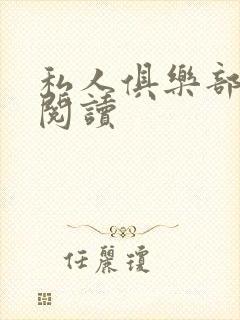 私人俱樂部
閱讀
任麗瓊